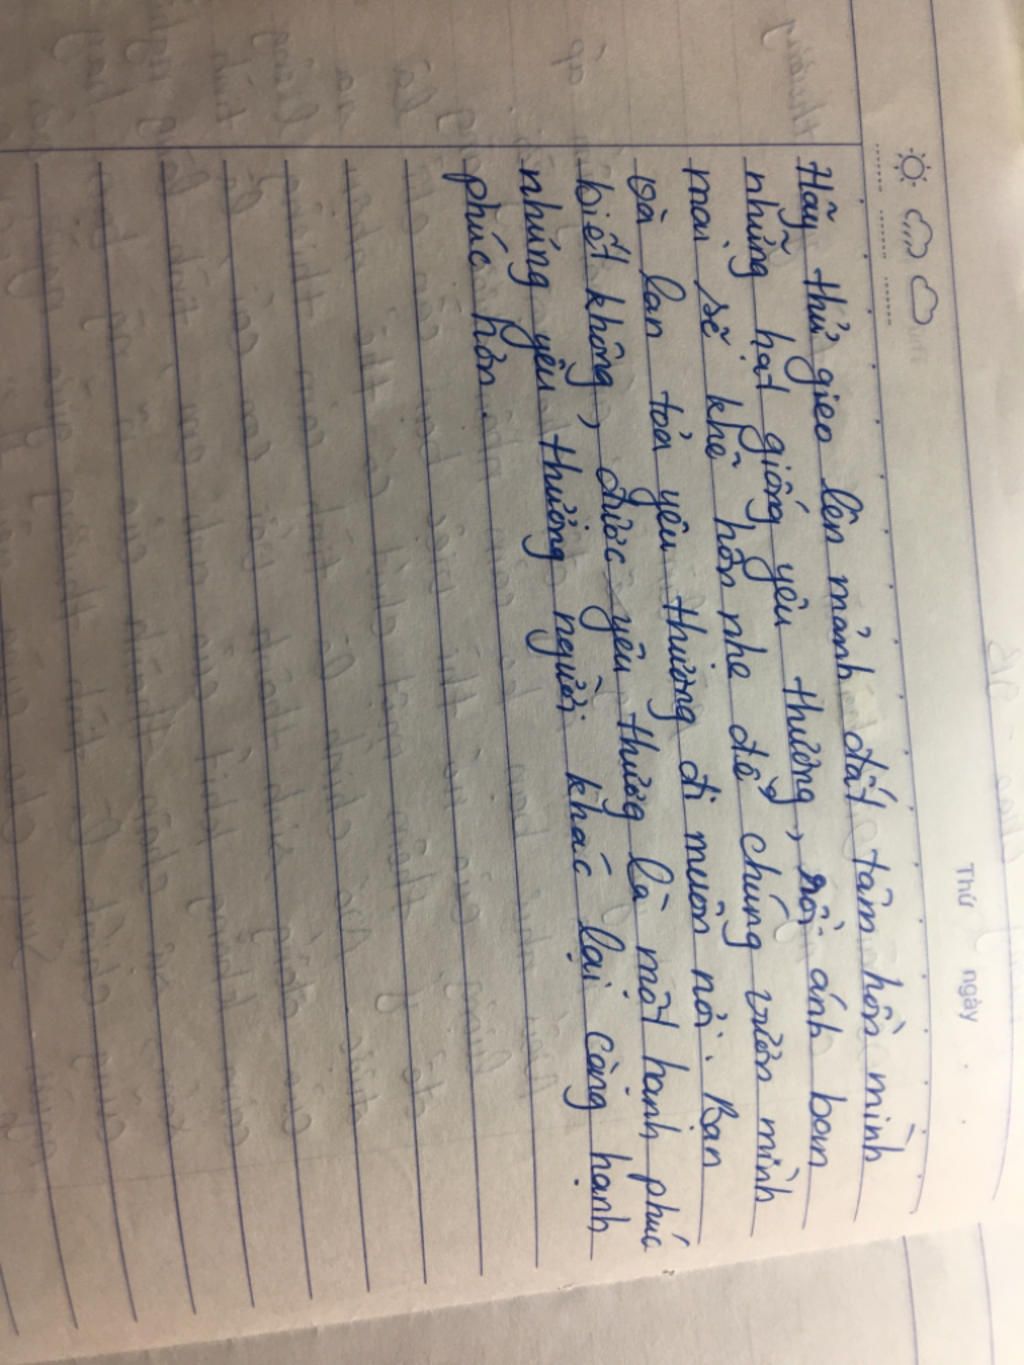 Thứ ngày
Hãy thử gieo lên mảnh đất tâm hồn mình
những hạt giống yêu thương, rồi ánh ban
mai sẽ khẽ hôn nhẹ để chúng vươn mình
và lan tỏa yêu thương đi muôn nơi. Bạn
biết không, được yêu thương là một hạnh phúc
nhưng yêu thương người khác lại càng hạnh
phúc hơn.